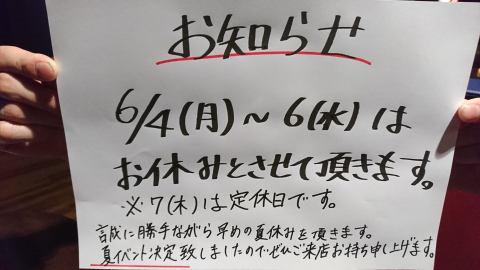 お知らせ
6/4(月)～6(水)は
お休みとさせて頂きます。
※7(木)は定休日です。
誠に勝手ながら早めの夏休みを頂きます。
夏イベント決定致しましたのでぜひご来店お待ち申し上げます。